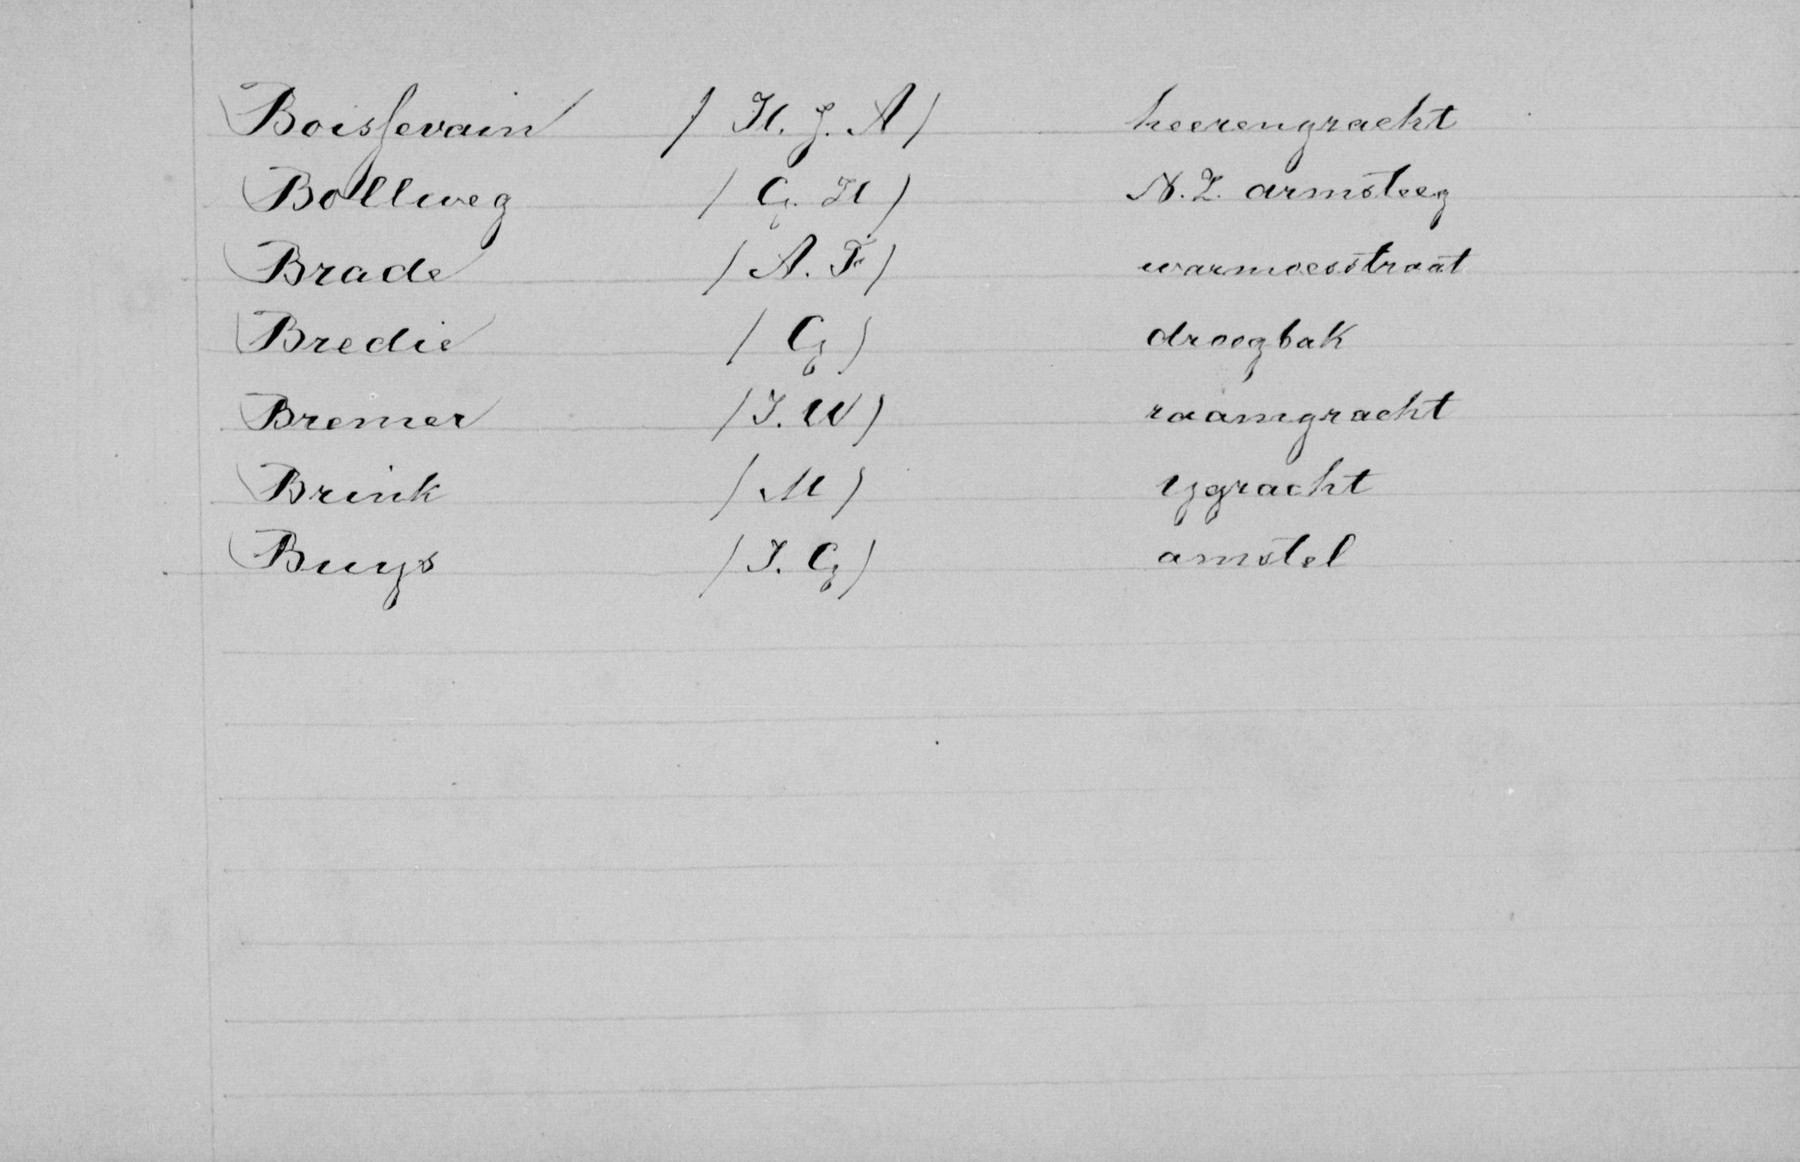 Boissevain (H. J. A) heerengracht
Bollweg (G. H) N. Z. armsteeg
Brade (A. F) warmoesstraat
Bredie (G) droogbak
Bremer (J. W) raamgracht
Brink (M) Ygracht
Buys (J. G) amstel